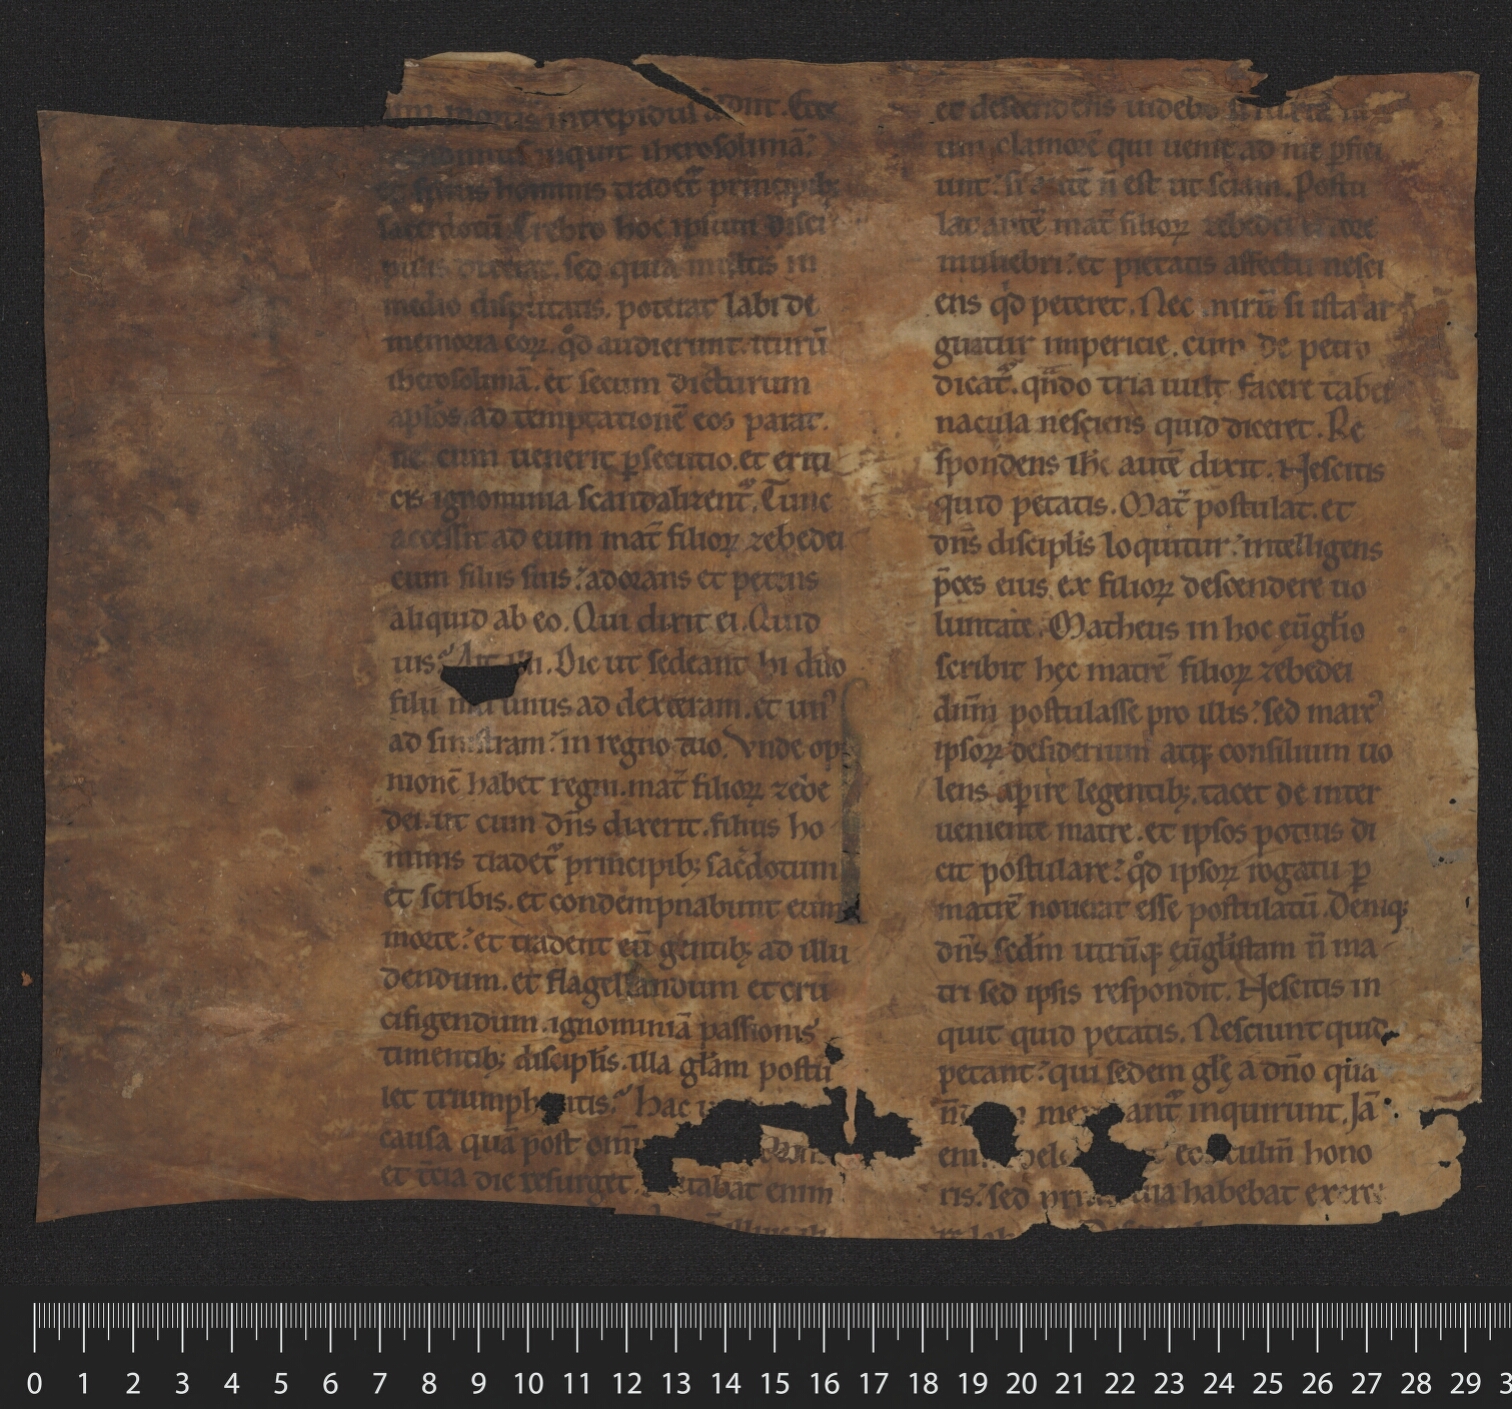 intrepidus adit. Ecce
inquit iherosolimā.
et filius hominis tradet᷑ principib;
sacerdotū. Crebro hoc ipsum disci
pulis dixerat. sed quia multis in
medio disputatis. poterat labi de
memoria eoꝝ. qͦd audierunt. iturū
iherosolimā. et secum dicturum
aplōs. ad temptationē eos parat.
ne cum uenerit ꝑsecutio. et cruci
cis ignominia scandalizent᷑. Tunc
accessit ad eum mat̄ filioꝝ zebedei
cum filiis suis. adorans et petens
aliquid ab eo. Qui dixit ei. Quid
uis? Ait illi. Dic ut sedeant hi duo
filii mei unus ad dexteram. et unꝰ
ad sinistram. in regno tuo. Vnde opi
nionē habet regni. mat̄ filioꝝ zebe
dei. ut cum dn̄s dixerit. filius ho
minis tradet᷑ principib; sac̄dotum
et scribis. et condempnabunt eum
morte. et tradent eū gentib; ad illu
dendum. et flagellandum et cru
cifigendum. ignominiā passionis
timentib; discipl̄is. illa gl̄am postu
let triumphantis. Hac
causa quā post om̄
et t̄cia die resurget. tabat enim
et descendens uidebo si
um clamorē qui uenit ad me ꝑfici
unt. si autē n̄ est ut sciam. Postu
lat autē mat̄ filioꝝ zebedei errore
muliebri. et pietatis affectu nesci
ens qͦd peteret. Nec mirū si ista ar
guatur impericie. cum de petro
dicat᷑. qn̄do tria uult facere taber
nacula nesciens quid diceret. Re
spondens ih̄c autē dixit. Nescitis
quid petatis. Mat̄ postulat. et
dn̄s discipl̄is loquitur. intelligens
p̄ces eius ex filioꝝ descendere uo
luntate. Matheus in hoc eūgl̄io
scribit hęc matrē filioꝝ zebedei
dn̄m postulasse pro illis. sed marcꝰ
ipsoꝝ desiderium atq; consilium uo
lens aꝑire legentib;. tacet de inter
ueniente matre. et ipsos potius di
cit postulare. qͦd ipsoꝝ rogatu ꝑ
matrē nouerat esse postulatū. Deniq;
dn̄s sed̄m utrūq; eūgl̄istam n̄ ma
tri sed ipsis respondit. Nescitis in
quit quid petatis. Nesciunt quid
petant. qui sedem glę a dn̄o quā
inquirunt. Jā
culm̄ hono
ris. sed habebat exerce